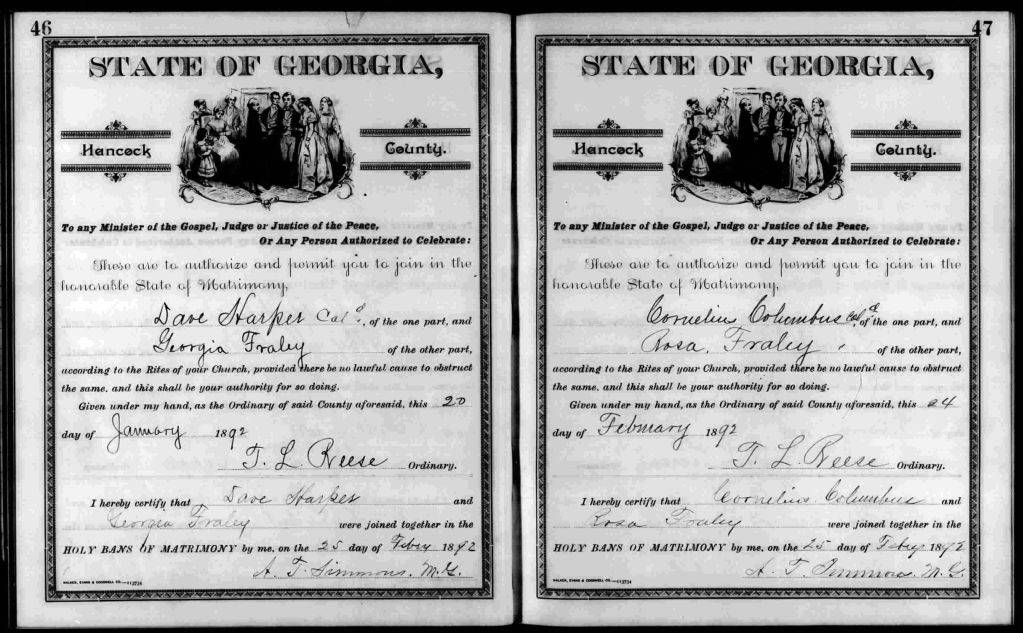 46
STATE OF GEORGIA,
Hancock County.
To any Minister of the Gospel, Judge or Justice of the Peace,
Or Any Person Authorized to Celebrate:
These are to authorize and permit you to join in the
honorable State of Matrimony,
Dave Harper Cold, of the one part, and
Georgia Fraley of the other part,
according to the Rites of your Church, provided there be no lawful cause to obstruct
the same, and this shall be your authority for so doing.
Given under my hand, as the Ordinary of said County aforesaid, this 20
day of January 1892
T. L. Reese Ordinary.
I hereby certify that Dave Harper and
Georgia Fraley were joined together in the
HOLY BANS OF MATRIMONY by me, on the 25 day of Feby 1892
A. T. Simmons. M.G.
WALKER, EVANS & COGSWELL CO.
47
STATE OF GEORGIA,
Hancock County.
To any Minister of the Gospel, Judge or Justice of the Peace,
Or Any Person Authorized to Celebrate:
These are to authorize and permit you to join in the
honorable State of Matrimony,
Cornelius Columbus Cold, of the one part, and
Rosa Fraley of the other part,
according to the Rites of your Church, provided there be no lawful cause to obstruct
the same, and this shall be your authority for so doing.
Given under my hand, as the Ordinary of said County aforesaid, this 24
day of February 1892
T. L. Reese Ordinary.
I hereby certify that Cornelius Columbus and
Rosa Fraley were joined together in the
HOLY BANS OF MATRIMONY by me, on the 25 day of Feby 1892
A. T. Simmons. M.G.
WALKER, EVANS & COGSWELL CO.